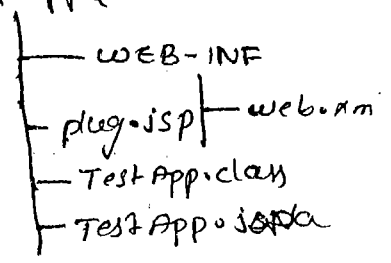 WEB-INF
plug.jsp web.xm
TestApp.class
TestApp.